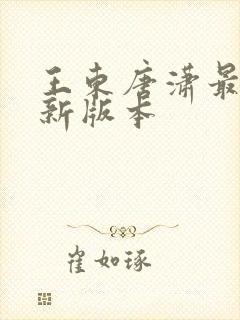 王东唐潇最
新版本
崔如琢